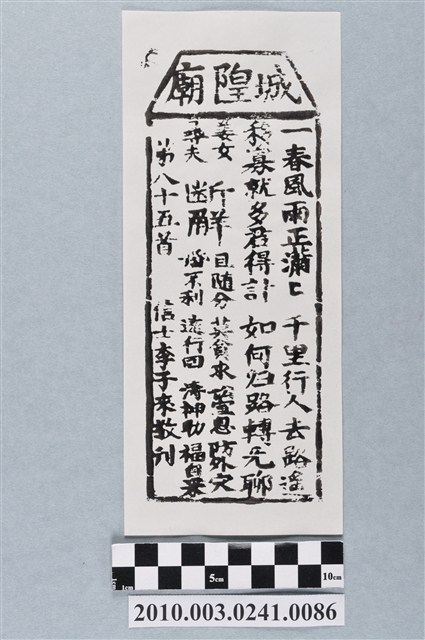 城隍廟
一春風雨正瀟〻 千里行人去路遙
移寡就多君得計 如何归路轉无聊
姜女 且随分 莫貪求 防外灾
尋夫 不利 遠行回 神助 福自來
第八十五首 信士李子來敬刊
5cm 10cm
1cm
2010.003.0241.0086